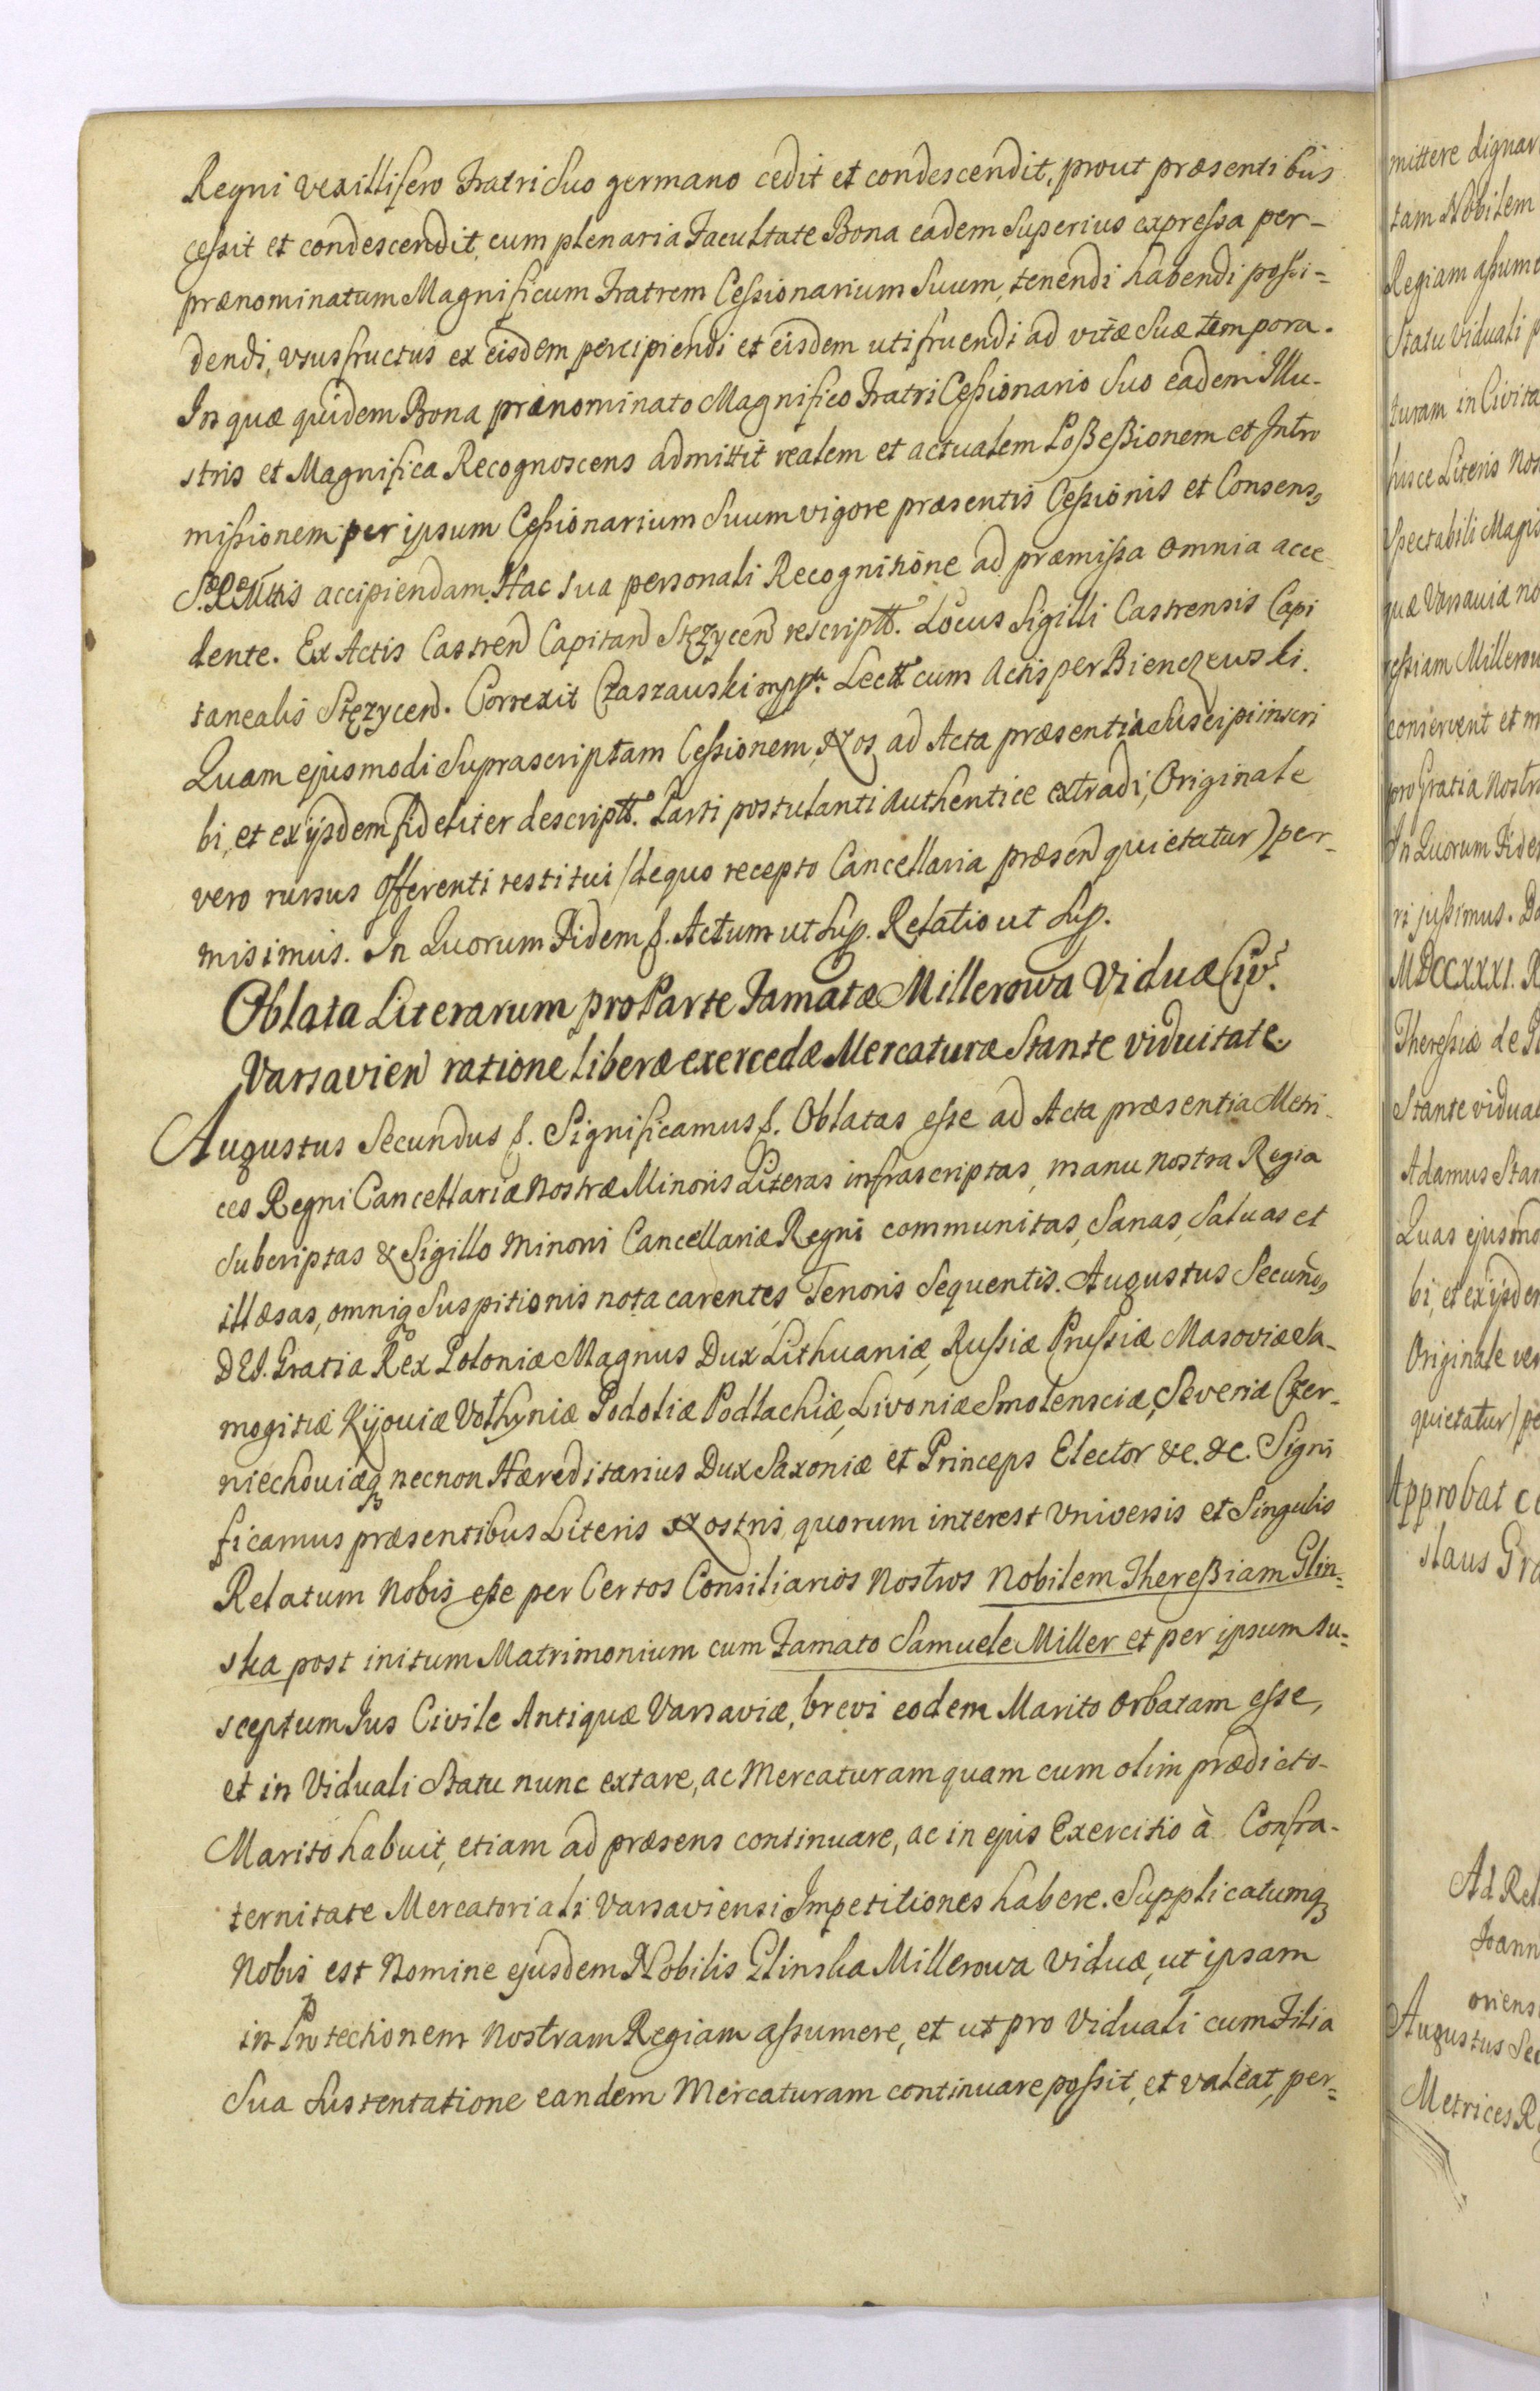 Regni Vexillifero Fratri Suo germano cedit et condescendit, prout præsentibus
cessit et condescendit, cum plenaria Facultate Bona eadem Superius expressa per-
prænominatum Magnificum Fratrem Cessionarium Suum, tenendi habendi possi=
dendi, Vsusfructus ex eisdem percipiendi et eisdem uti fruendi ad vitæ Suæ tempora.
In quæ quidem Bona prænominato Magnifico Fratri Cessionario Suo eadem Illu-
stris et Magnifica Recognoscens admittit realem et actualem Possessionem et Intro
missionem per ipsum Cessionarium Suum vigore præsentis Cessionis et Consens9
S. R. Mttis accipiendam. Hac sua personali Recognitione ad præmissa omnia acce
dente. Ex Actis Castren Capitan Stęzycen rescript. Locus Sigilli Castrensis Capi
tanealis Stęzycen. Correxit Czaszauski mpp. Lect cum Actis per Bienczewski.
Quam ejusmodi Suprascriptam Cessionem, Nos ad Acta præsentia Suscipi inscri
bi, et ex ijsdem fideliter descript. Parti postulanti Authentice extradi, Originale
vero rursus Offerenti restitui (de quo recepto Cancellaria præsen quietatur) per-
misimus. In Quorum Fidem f. Actum ut Sup. Relatio ut Sup.
Oblata Literarum pro Parte Famatæ Millerowa Viduæ Civ.
Varsavien ratione liberæ exercedæ Mercaturæ Stante viduitate.
Augustus Secundus f. Significamus f. Oblatas esse ad Acta præsentia Metri-
ces Regni Cancellariæ Nostræ Minoris Literas infrascriptas, manu nostra Regia
Subcriptas & Sigillo Minori Cancellariæ Regni communitas, Sanas, Saluas et
illæsas, omniq Suspitionis nota carentes, Tenoris Sequentis. Augustus Secund9
DEI. Gratia Rex Poloniæ Magnus Dux Lithuaniæ, Russiæ Prussiæ Masoviæ Sa-
mogitiæ Kijouiæ Volhyniæ Podoliæ Podlachiæ, Livoniæ Smolensciæ, Severiæ Czer-
niechouiæq necnon Hæreditarius Dux Saxoniæ et Princeps Elector &c. &c. Signi
ficamus præsentibus Literis Nostris, quorum interest Vniversis et Singulis
Relatum Nobis esse per Certos Consiliarios Nostros Nobilem Theressiam Glin=
ska post initum Matrimonium cum Famato Samuele Miller et per ipsum su=
sceptum Jus Civile Antiquæ Varsaviæ, brevi eodem Marito Orbatam esse,
et in Viduali Statu nunc extare, ac Mercaturam quam cum olim prædicto-
Marito habuit, etiam ad præsens continuare, ac in ejus Exercitio à Confra-
ternitate Mercatoriali Varsaviensi Impetitiones habere. Supplicatumq
Nobis est Nomine ejusdem Nobilis Glinska Millerowa Viduæ, ut ipsam
in Protectionem Nostram Regiam assumere, et ut pro Viduali cum Filia
Sua Sustentatione eandem Mercaturam continuare possit, et valeat, per=
mittere dignar
tam Nobilem
Regiam assume
Statu Viduali p
turam in Civita
hisce Literis Nos
Spectabili Magis
quæ Varsaviæ no
ressiam Millerow
conservent et m
pro Gratia Nostra
In Quorum Fidem
ri jussimus. Da
MDCCXXXI. R
Theressiæ de Gl
Stante vidual
Adamus Stan
Quas ejusmo
bi, et ex ijsdem
Originale ver
quietatur) pe
Approbat co
slaus Gra
Ad Rel
Joann
oriens
Augustus Sec
Metrices R